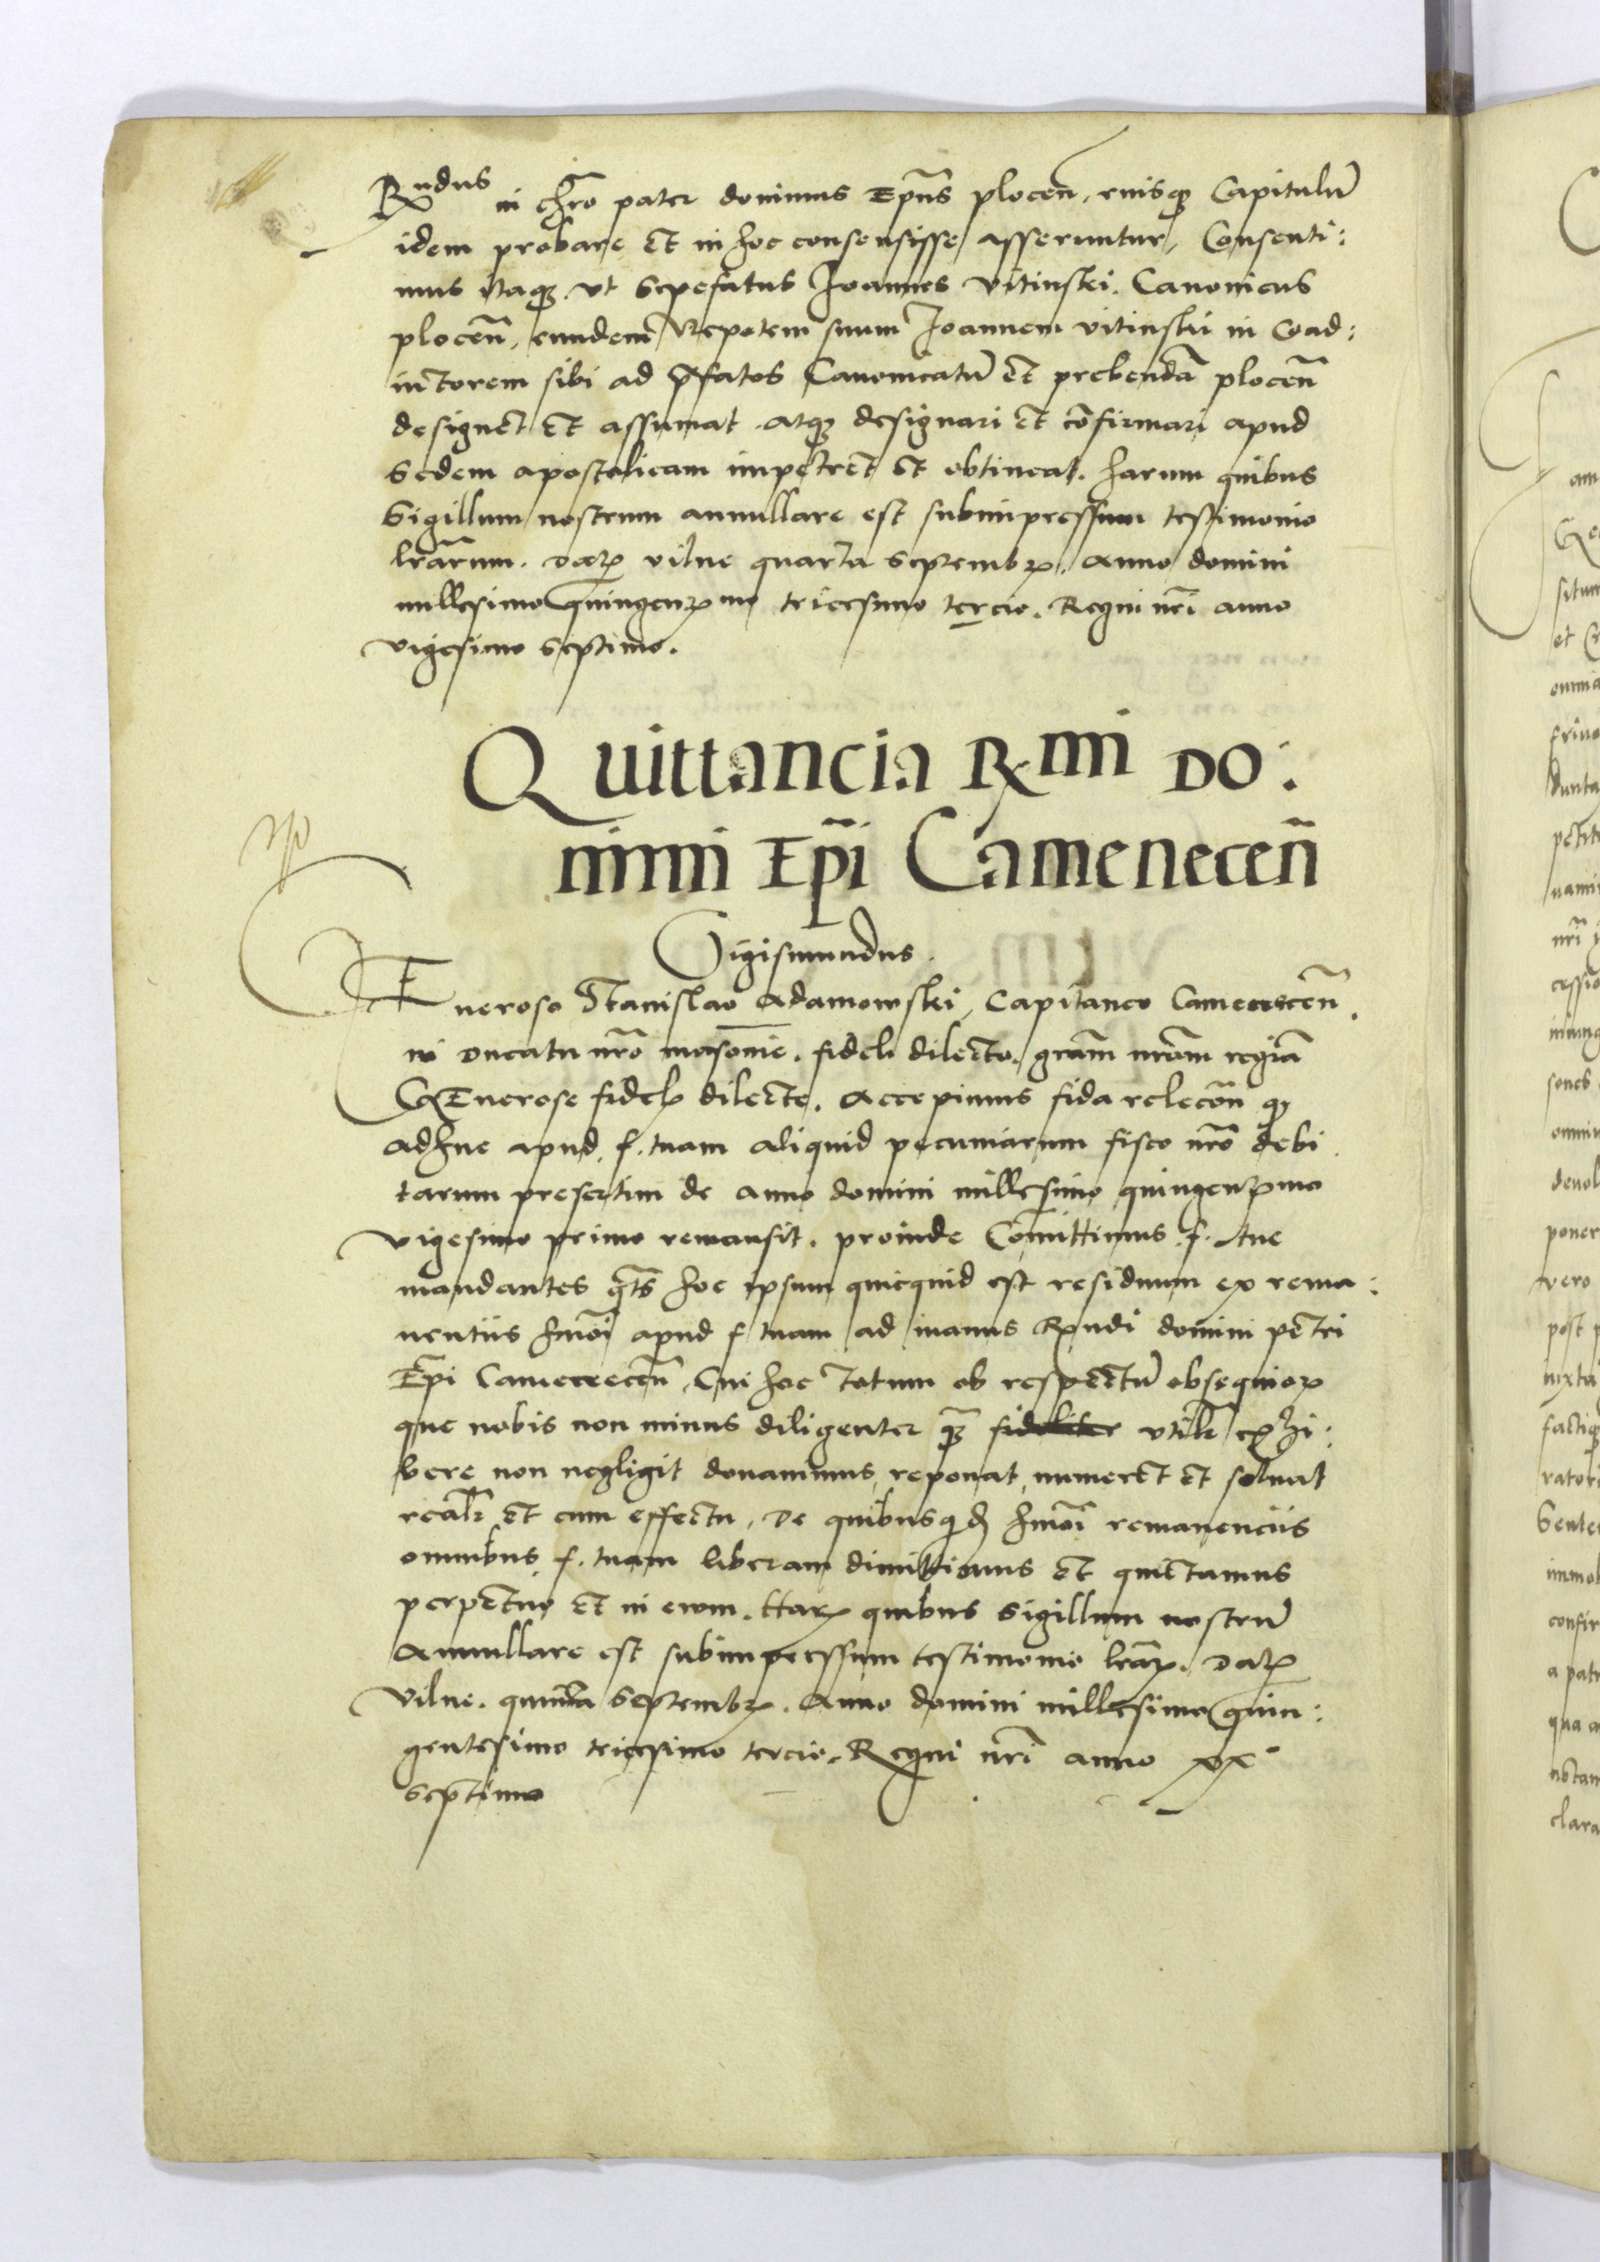 Rndus in chro pater dominus Epus plocen, eiusq Capitulu
idem probare et in hoc consensisse asseruntur, Consenti:
mus itaq ut Sepefatus Joannes Vitinski Canonicus
plocen, eundem Nepotem suum Joannem vitinski in Coad:
iutorem sibi ad pfatos Canonicatu et prebenda plocen
designet et assumat atq designari et cofirmari apud
Sedem apostolicam impetret et obtineat. harum quibus
Sigillum nostrum annullare est subimpressum testimonio
lrarum. Dat vilne quarta Septembr. Anno domini
millesimo quingenmo tricesimo tercio. Regni nri anno
vigesimo septimo.
Quittancia Rmi Do:
mini Epi Camenecen
Sigismundus.
Eneroso Stanislao Adamowski, Capitaneo Camenecen
in Ducatu nro masovie. fideli dilecto. gram nram regia
GEnerose fidel dilecte. Accepimus fida relecon q
adhuc apud f. tuam aliquid pecuniarum fisco nro debi
tarum presertim de anno domini millesimo quingenmo
vigesimo primo remansit. proinde Comittimus f. tue
mandantes qts hoc ipsum quicquid est residuum ex rema:
nentiis hmoi apud f tuam ad manus Rndi domini petri
Epi Camenecen, Cui hoc totum ob respectu obsequior
que nobis non minus diligenter q fideliter utilr exhi:
bere non negligit donavimus, reponat, numeret et solvat
realr et cum effectu, De quibusqd hmoi remanenciis
omnibus f. tuam liberam dimittimus et quictamus
perpetuo et in evum. Har quibus Sigillum nostru
Annullare est subimpressum testimonio lrar. Dat
Vilne. quinta Septembr. Anno domini millesimo quin:
gentesimo tricesimo tercio. Regni nri anno xx
septimo